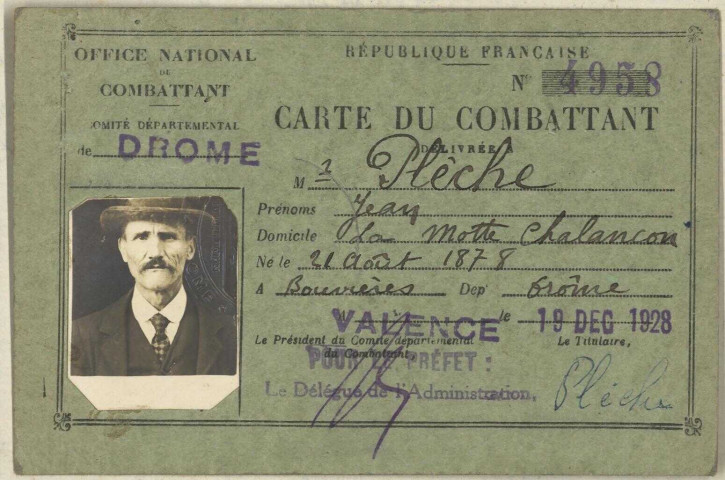 OFFICE NATIONAL
DU
COMBATTANT
COMITÉ DÉPARTEMENTAL
de DROME
RÉPUBLIQUE FRANÇAISE
N° 4958
CARTE DU COMBATTANT
DÉLIVRÉE A
Mr Plèche
Prénoms Jean
Domicile La Motte Chalancon
Né le 21 Août 1878
A Bouvières Dept Drôme
VALENCE le 19 DEC 1928
Le Président du Comité départemental
du Combattant,
Le Titulaire,
POUR LE PRÉFET :
Le Délégué de l'Administration,
Plèche